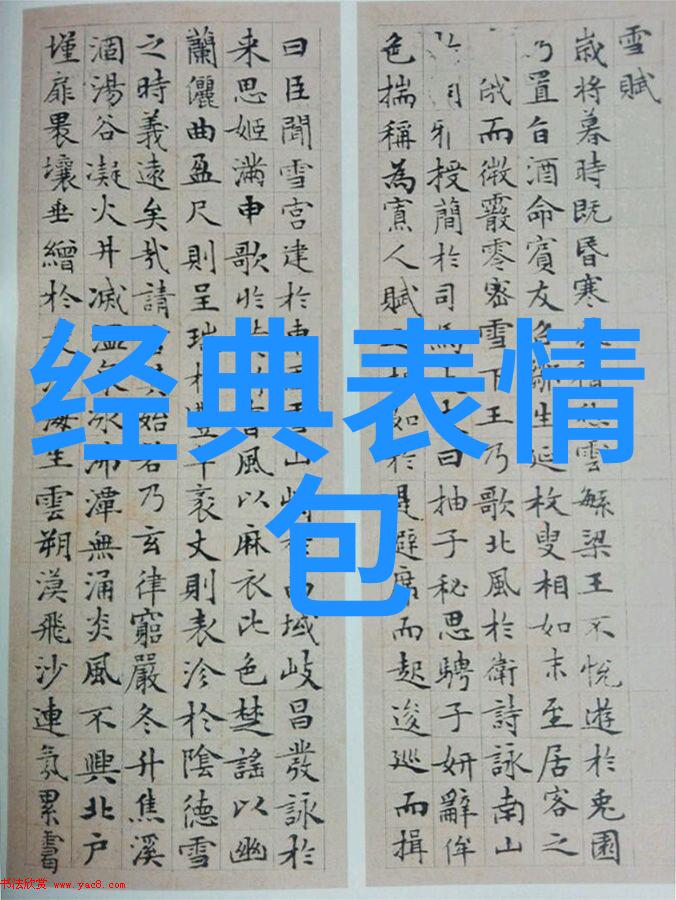 雪賦
歲將暮時既昏寒積愁雲繁梁王不悅遊於兔園
乃置旨酒命賓友召鄒生延枚叟相如末至居客之
俄而微霰零密雪下王乃歌北風於衛詩詠南山
雅授簡於司馬大夫曰抽子秘思騁子妍辭侔
色揣稱為寡人賦之相如於是避席而起逡巡而揖
曰臣聞雪宮建於東國雪山峙於西域岐昌發詠於
来思姬滿申歌於黃竹曹風以麻衣比色楚謠以幽
蘭儷曲盈尺則呈瑞於豐年袤丈則表沴於陰德雪
之時義遠矣哉請言其始若乃玄律窮嚴冬升焦溪
涸湯谷凝火井滅溫泉冰沸潭無涌炎風不興北戶
墐扉壤垂繒於海生雲朔漠飛沙連氛累靄
经典表情
包
书法欣赏 www.yac8.com